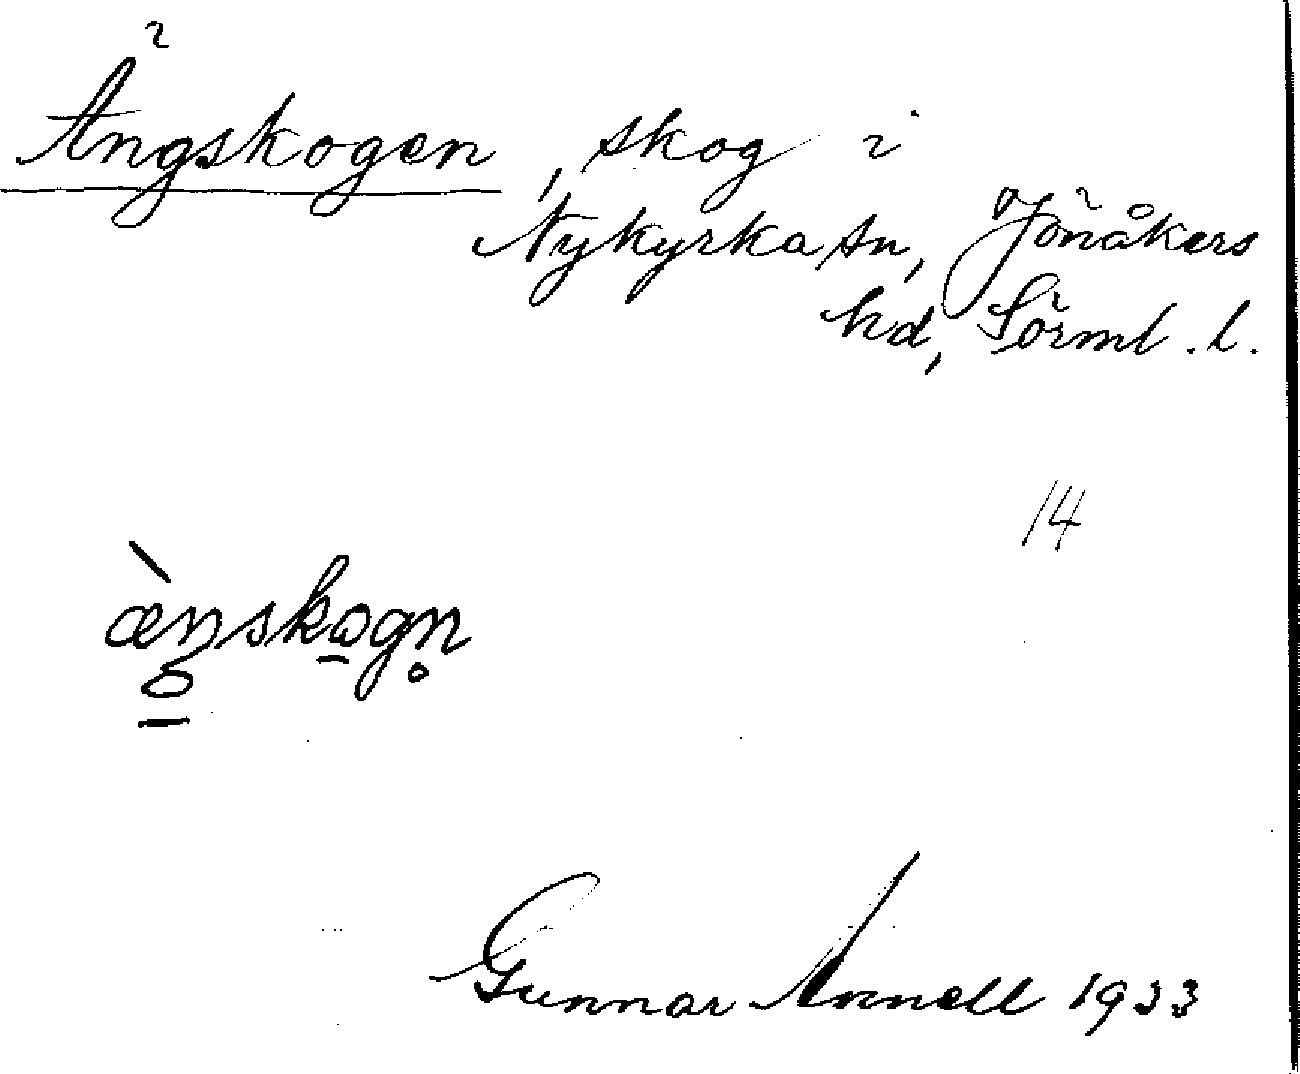 Ängskogen, skog i
Nykyrka sn, Jönåkers
hd, Sörml. l.
14
æ̀ŋskogn̥
Gunnar Annell 1933